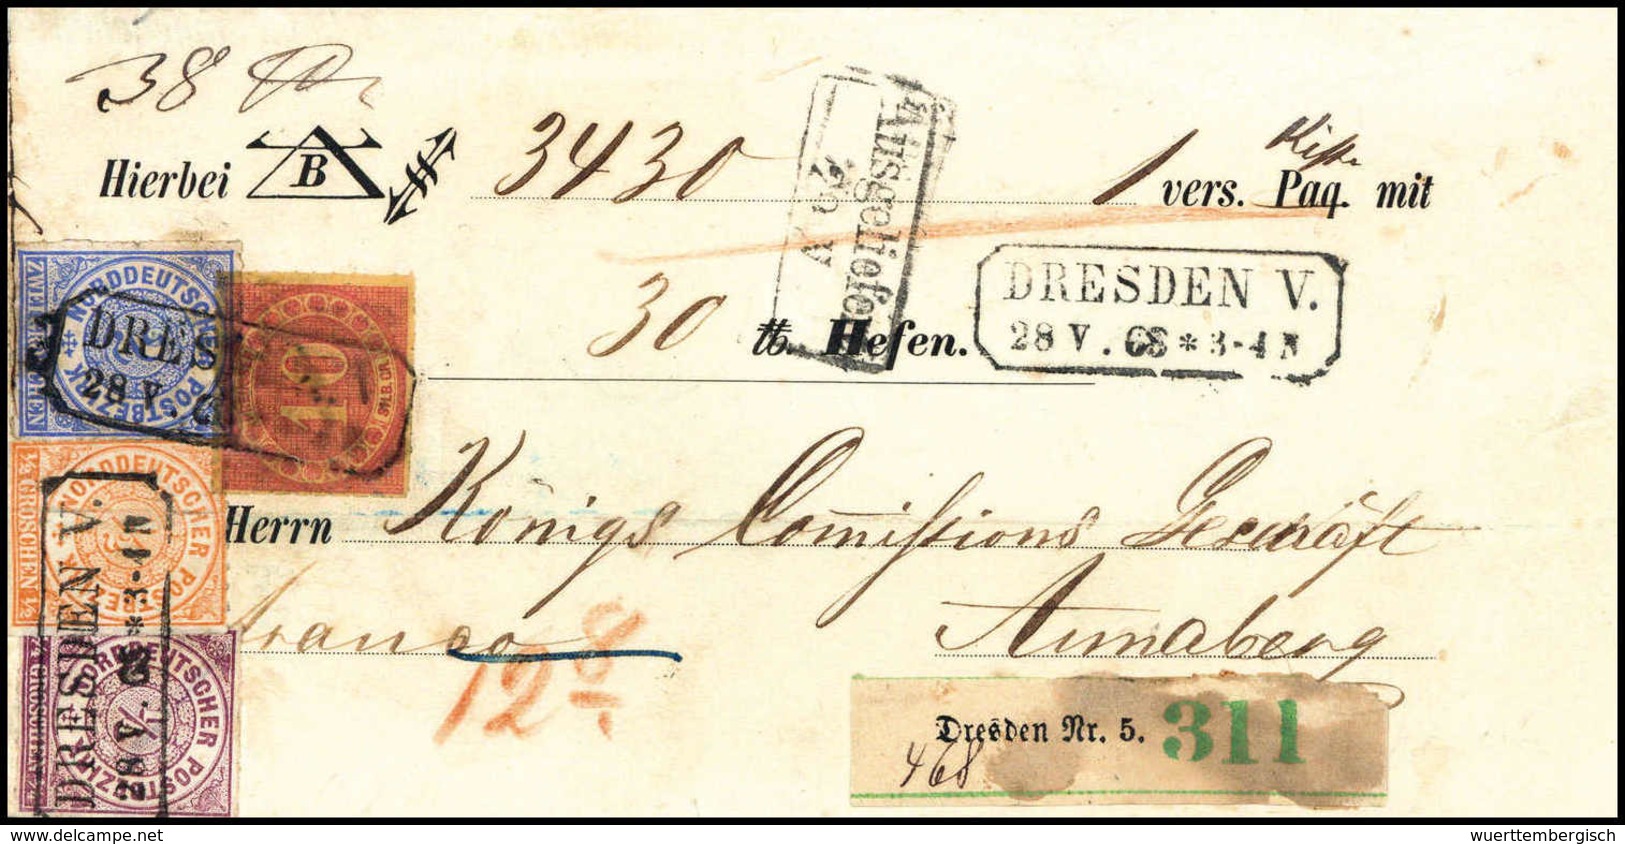 38
Hierbei B 3430 1 vers. Paq. mit
Kiste
Ausgeliefert
30 V
30 ℔. Hefen.
DRESDEN V.
28 V. 68 * 3-4 N
ZWEI GROSCHEN
NORDDEUTSCHER POSTBEZIRK
DRES
28 V.
10
SILB. GR.
Herrn Königs Comissions Geschäft
franco Annaberg
12 8
½ GROSCHEN ½
NORDDEUTSCHER POSTBEZIRK
DRESDEN V.
28 V. 68 * 3-4 N
¼ GROSCHEN ¼
NORDDEUTSCHER POSTBEZIRK
Dresden Nr. 5. 311
468
www.delcampe.net
wuerttembergisch